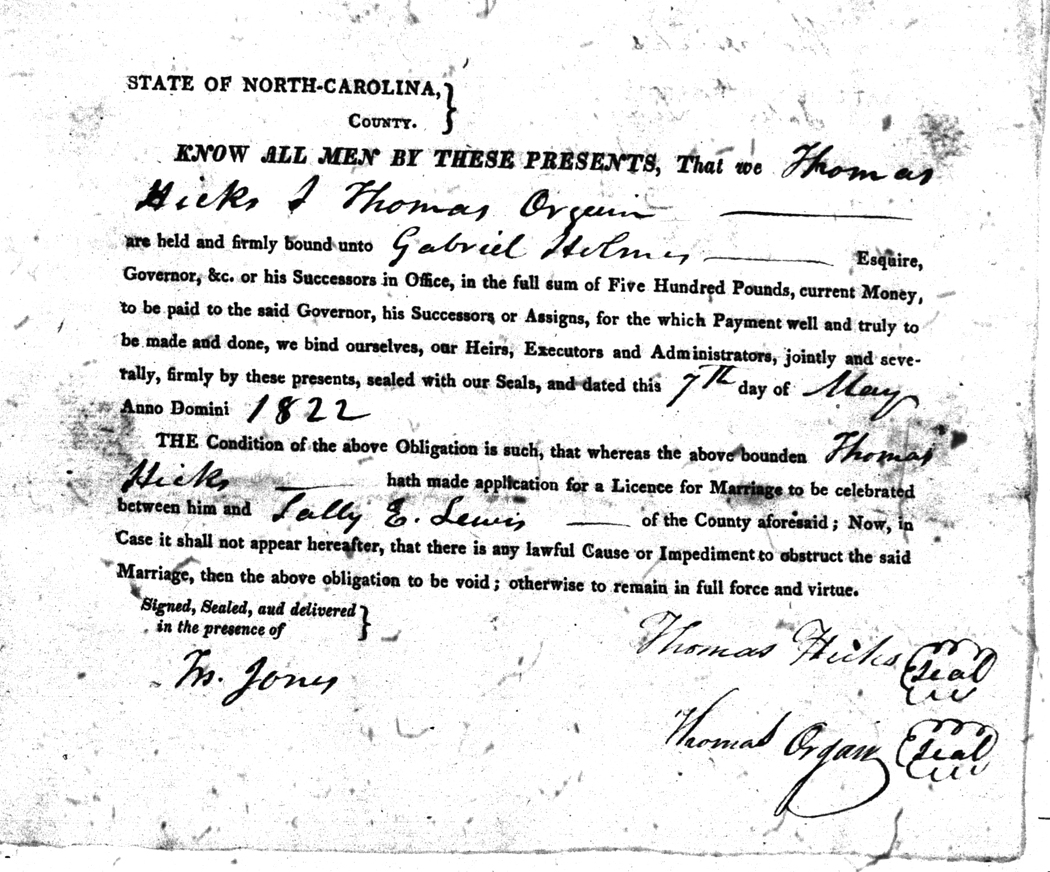 STATE OF NORTH-CAROLINA, }
COUNTY.
KNOW ALL MEN BY THESE PRESENTS, That we Thomas
Hicks & Thomas Orguin
are held and firmly bound unto Gabriel Holmes Esquire,
Governor, &c. or his Successors in Office, in the full sum of Five Hundred Pounds, current Money,
to be paid to the said Governor, his Successors or Assigns, for the which Payment well and truly to
be made and done, we bind ourselves, our Heirs, Executors and Administrators, jointly and seve-
rally, firmly by these presents, sealed with our Seals, and dated this 7th day of May
Anno Domini 1822
THE Condition of the above Obligation is such, that whereas the above bounden Thomas
Hicks hath made application for a Licence for Marriage to be celebrated
between him and Tally E. Lewis of the County aforesaid; Now, in
Case it shall not appear hereafter, that there is any lawful Cause or Impediment to obstruct the said
Marriage, then the above obligation to be void; otherwise to remain in full force and virtue.
Signed, Sealed, and delivered }
in the presence of
Thomas Hicks Seal
Jones
Thomas Organ Seal